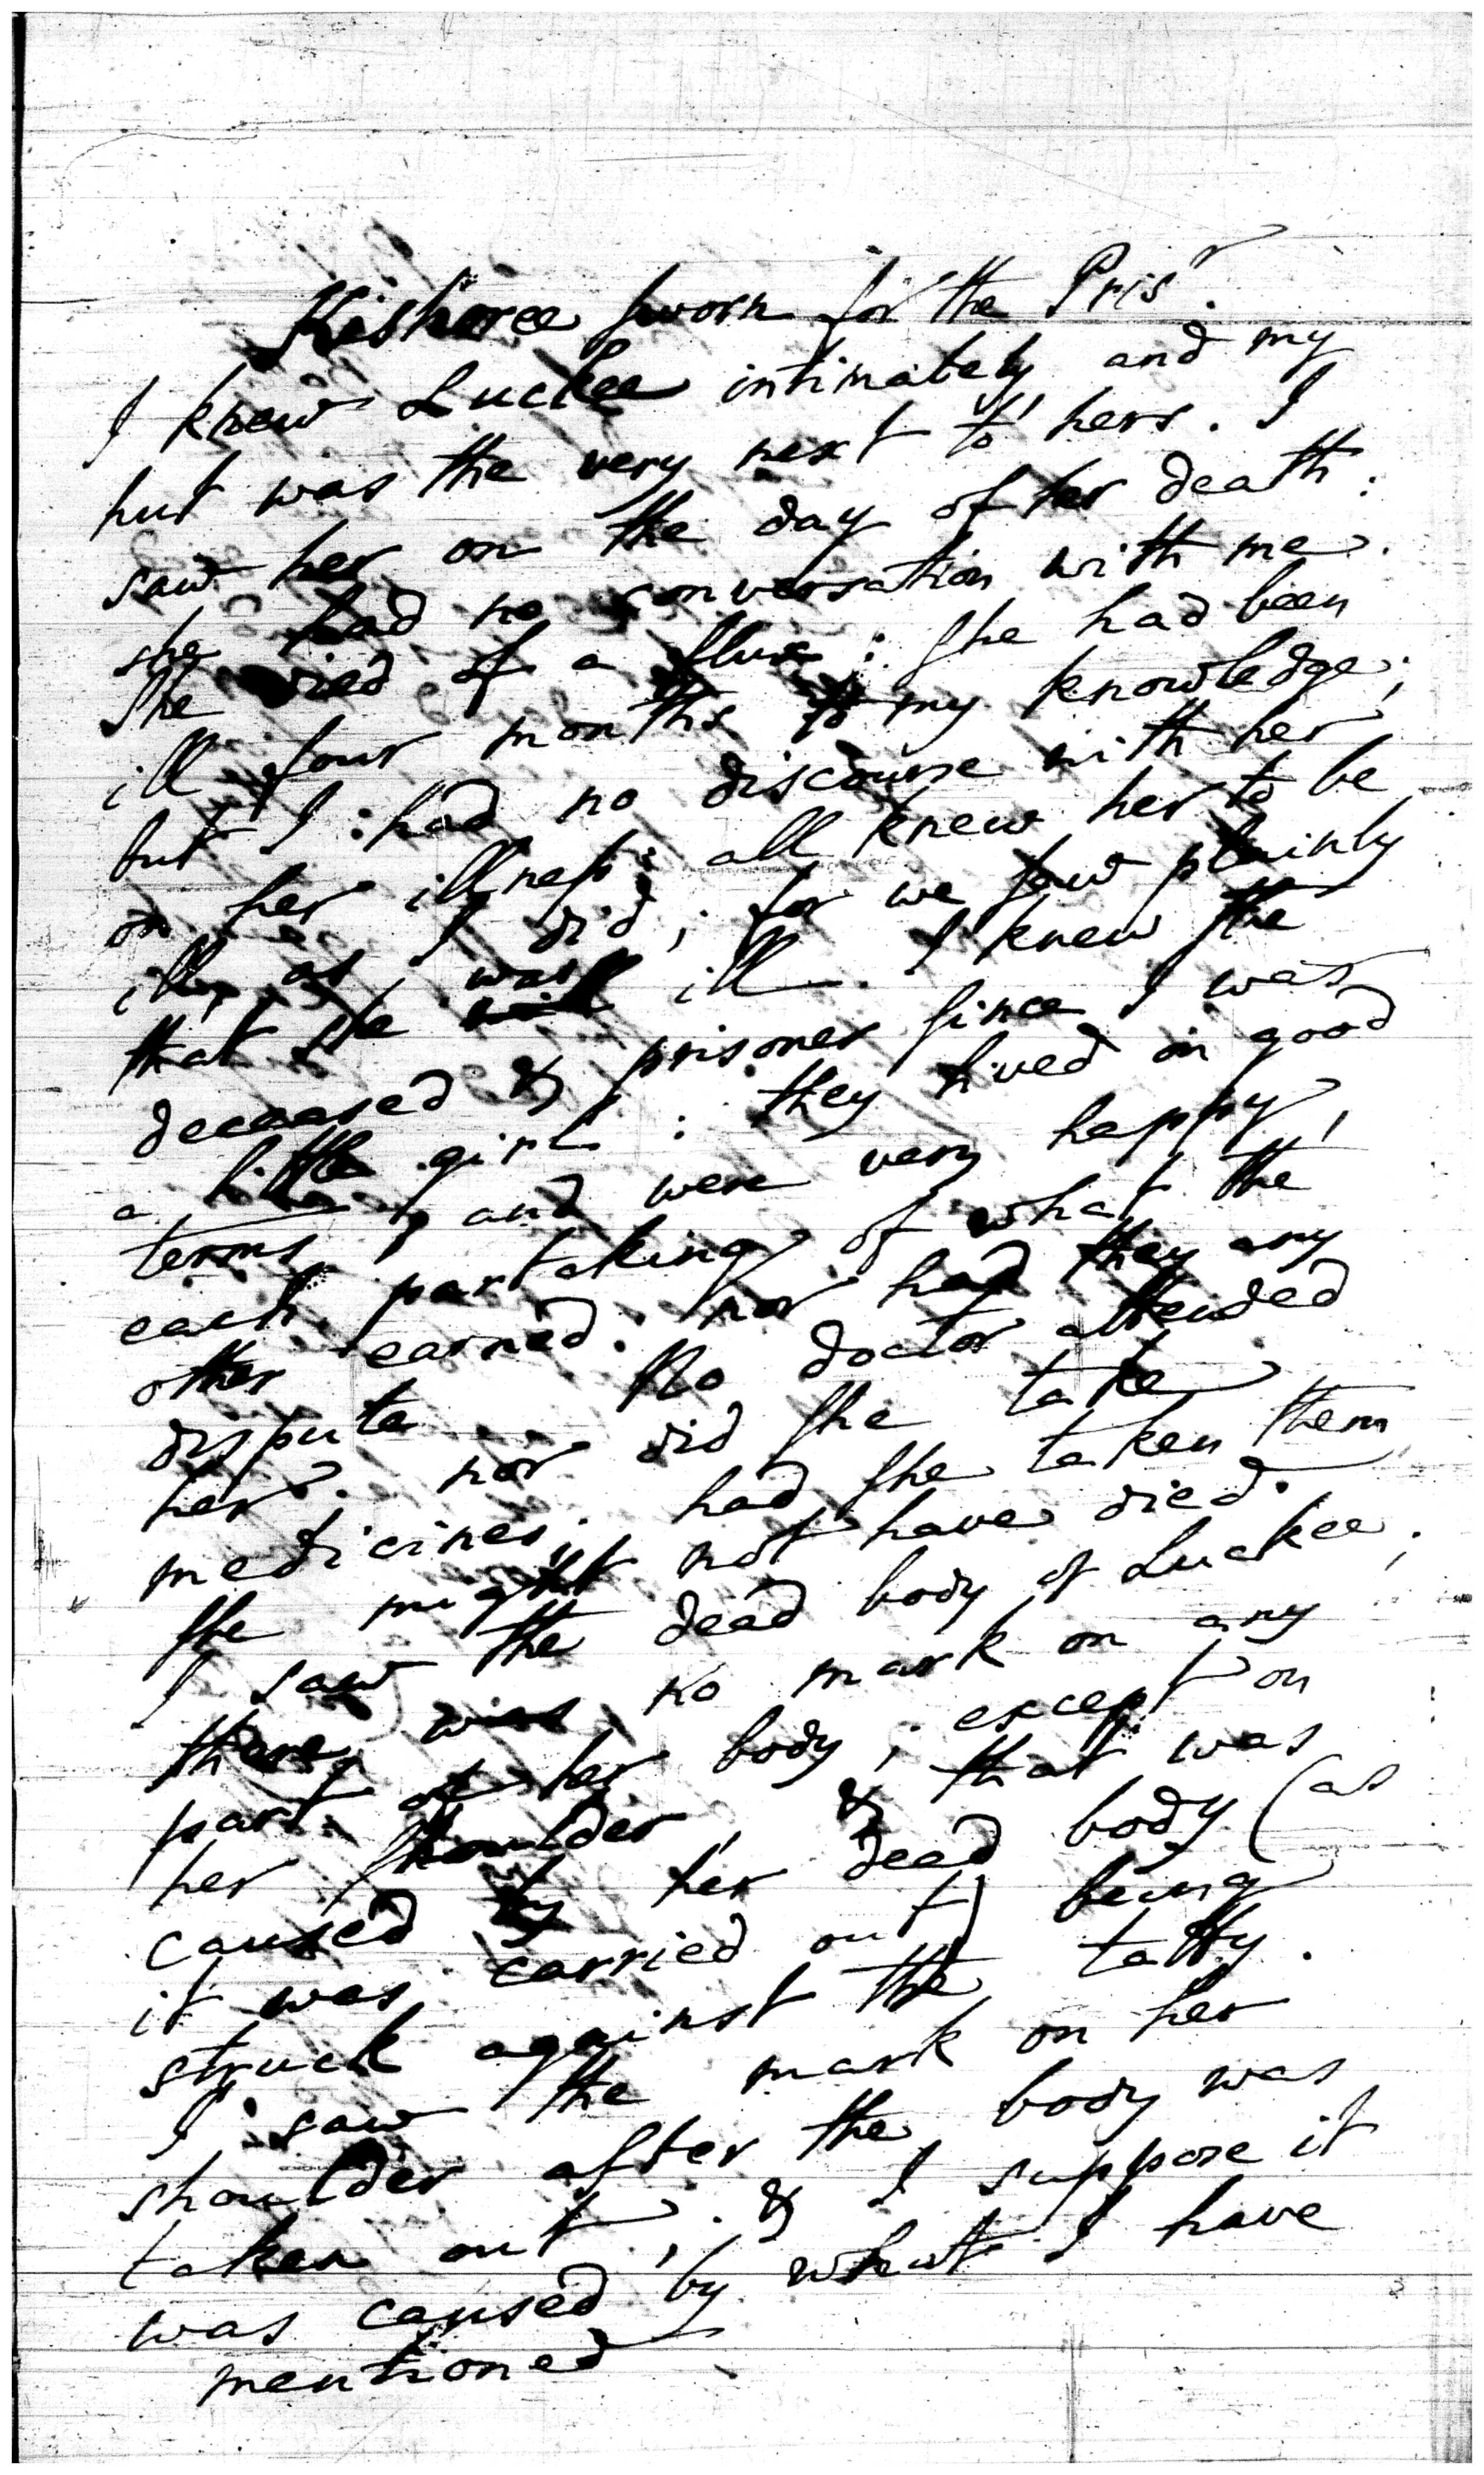 Kishoree sworn for the Prisr.
I knew Luckee intimately and my
hut was the very next to hers. I
saw her on the day of her death:
she had no conversation with me.
She died of a flux: she had been
ill four months to my knowledge;
but I had no discourse with her
on her illness: all knew her to be
ill, as I did; for we saw plainly
that she was ill. I knew the
deceased & prisoner since I was
a little girl: they lived in good
terms, and were very happy,
each partaking of what the
other earned. nor had they any
dispute No doctor attended
her. nor did she take
medicines; had she taken them
she might not have died.
I saw the dead body of Luckee;
there was no mark on any
part of her body; except on
her shoulder, & that was
caused by her dead body (as
it was carried out) being
struck against the tatty.
I saw the mark on her
shoulder after the body was
taken out, & I suppose it
was caused by what I have
mentioned